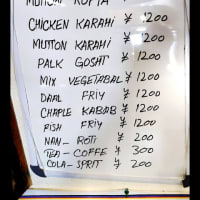 MUTTON KOFTA
CHICKEN KARAHI ¥ 1200
MUTTON KARAHI ¥ 1200
PALK GOSHT ¥ 1200
MIX VEGETABAL ¥ 1200
DAAL FRIY ¥ 1200
CHAPLE KABAB ¥ 1200
FISH FRIY ¥ 1200
NAN - ROTI ¥ 200
TEA - COFFE ¥ 300
COLA - SPRIT ¥ 200